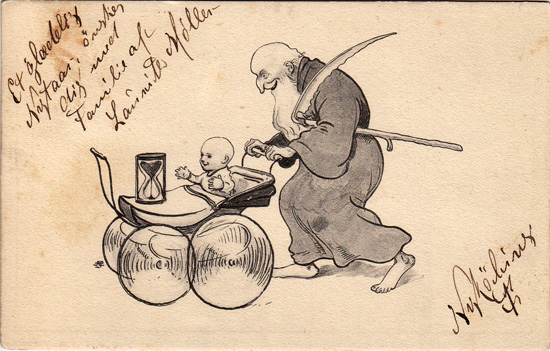 Et glædelig
Nytaar, ønskes
dig med
Familie af
Laurits Möller
Nykøbing